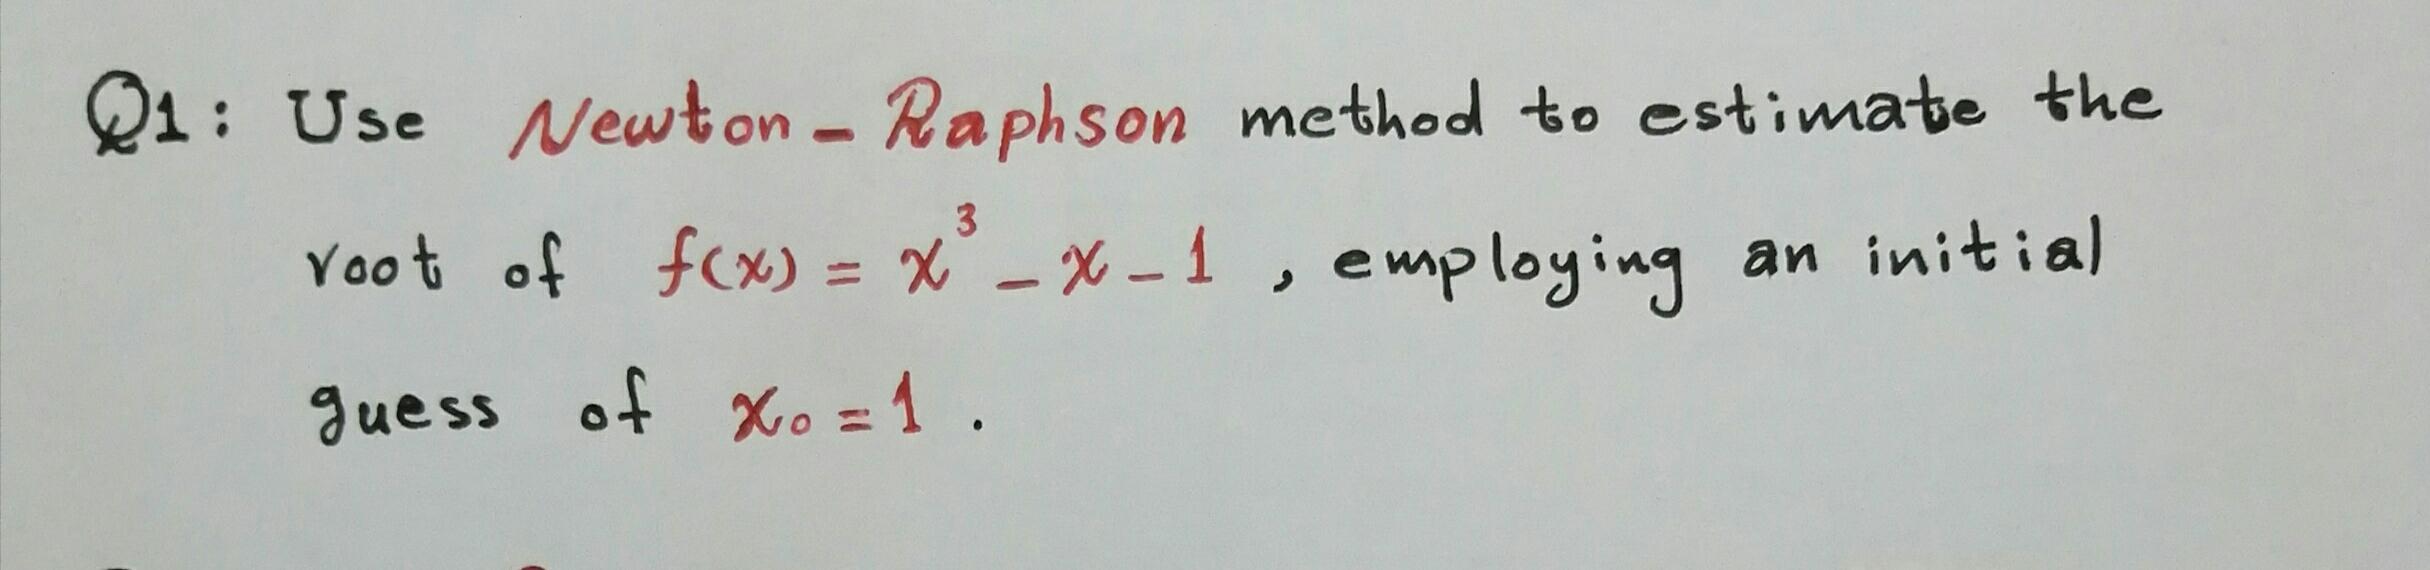 Q1: Use Newton-Raphson method to estimate the
root of f(x) = x³ - x - 1 , employing an initial
guess of x₀ = 1 .